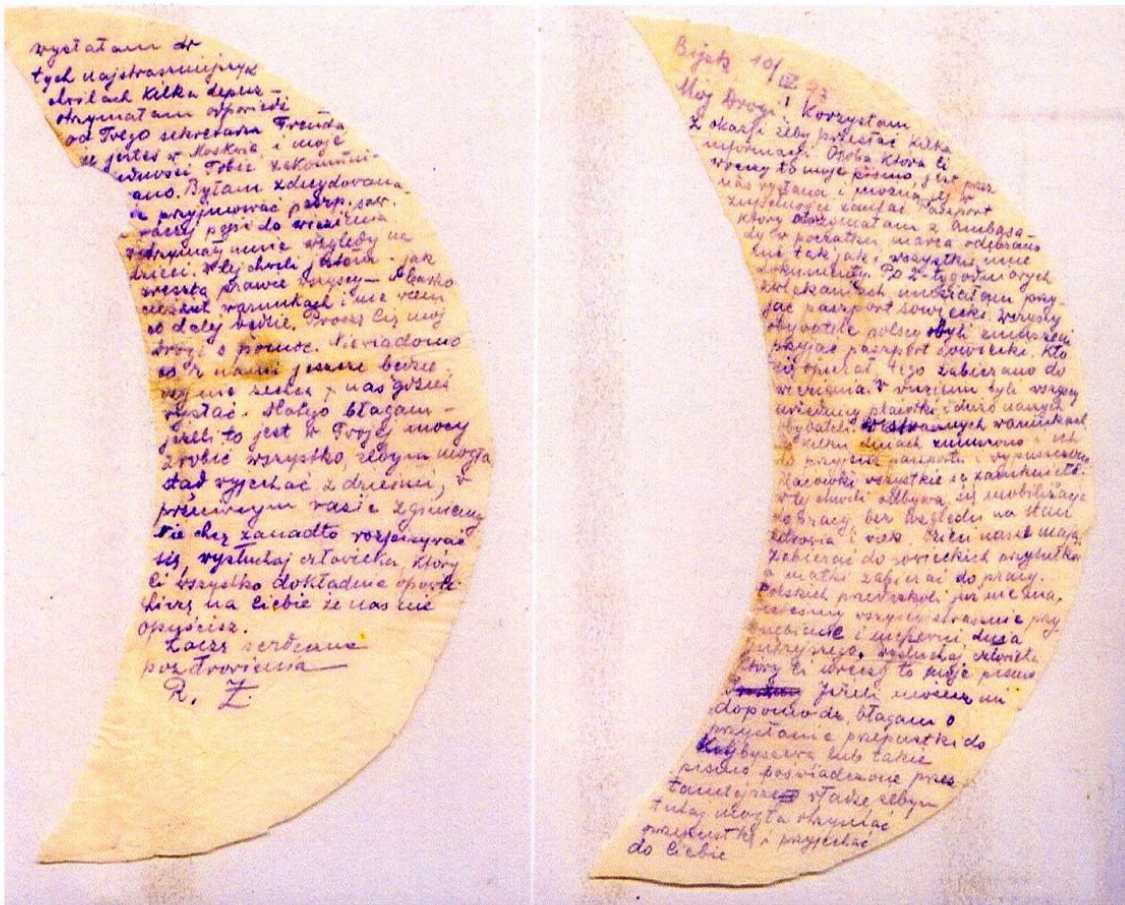 Bijsk 10/IV 43
Mój Drogi! Korzystam
z okazji żeby przesłać kilka
informacji. Osoba która Ci
wręczy to moje pismo, jest przez
nas wysłana i można jej w
zupełności zaufać. Paszport
który otrzymałam z Ambasa-
dy w początku marca odebrano
mi tak jak i wszystkie inne
dokumenty. Po 2-tygodniowych
zwlekaniach musiałam przy-
jąć paszport sowiecki. Wszyscy
obywatele polscy byli zmuszeni
przyjąć paszport sowiecki. Kto
się opierał, tego zabierano do
więzienia. W więzieniu byli wszyscy
urzędnicy placówki i dużo naszych
obywateli. W strasznych warunkach
po kilku dniach zmuszono ich
do przyjęcia paszportu i wypuszczono
Placówki wszystkie są zamknięte.
W tej chwili odbywa się mobilizacja
do pracy, bez względu na stan
zdrowia i wiek. Dzieci nasze mają
zabierać do sowieckich
a matki zabierać do pracy.
Polskich przedszkoli już nie ma.
Jesteśmy wszyscy strasznie przy-
gnębieni i niepewni dnia
jutrzejszego. Wysłuchaj człowieka
który Ci wręczy to moje pismo
Jeżeli możesz mi
dopomódz, błagam o
przysłanie przepustki do
Kujbyszewa lub takie
pismo poświadczone przez
tamtejsze władze żebym
tutaj mogła otrzymać
przepustkę i przyjechać
do Ciebie
wysłałam w
tych najstraszniejszych
chwilach kilka depesz –
otrzymałam odpowiedź
od Twego sekretarza Freunda
że jesteś w Moskwie i moje
Tobie zakomuni-
ano. Byłam zdecydowana
przyjmować paszp. sow.
raczej pójść do więzienia
wstrzymały mnie względy na
dzieci. W tej chwili jestem – jak
zresztą prawie wszyscy – w bardzo
ciężkich warunkach i nie wiem
co dalej będzie. Proszę Cię mój
drogi o pomoc. Niewiadomo
co z nami jeszcze będzie
czy nie zechcą nas gdzieś
wysłać. Dlatego błagam –
jeżeli to jest w Twojej mocy
zrobić wszystko, żebym mogła
stąd wyjechać z dziećmi, w
przeciwnym razie zginiemy
Nie chcę zanadto rozpisywać
się, wysłuchaj człowieka, który
Ci wszystko dokładnie opowie
Liczę na Ciebie że nas nie
opuścisz.
Łączę serdeczne
pozdrowienia
R. Z.